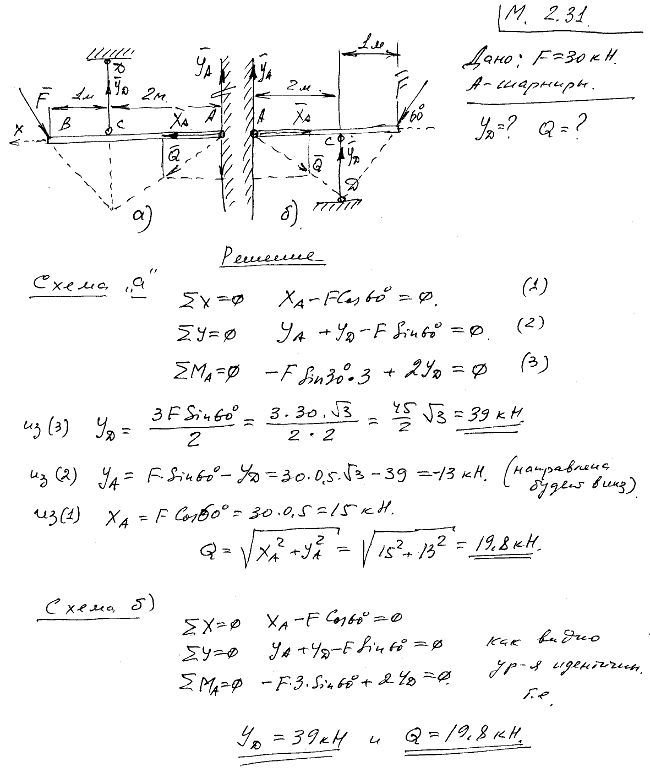 М. 2.31.
Дано: F=30кН.
А-шарниры.
Y_D=? Q=?
1м
D
Ȳ_D
Ȳ_A
Ȳ_A
F̄
1м
2м.
2м
F̄
60°
x
B
C
X̄_A
A
A
X̄_A
C
Ȳ_D
Q̄
Q̄
D
а)
б)
Решение
Схема "а"
ΣX=0 X_A-FCos60°=0. (1)
ΣY=0 Y_A+Y_D-FSin60°=0. (2)
ΣM_A=0 -FSin30°·3+2Y_D=0 (3)
из(3) Y_D= 3FSin60°/2 = 3·30·√3/2·2 = 45/2 √3 =39кН.
из(2) Y_A=F·Sin60°-Y_D=30·0,5·√3-39=-13кН. (направлена
будет вниз).
из(1) X_A=FCos60°=30·0,5=15кН.
Q=√X_A²+Y_A² = √15²+13² = 19,8кН.
Схема б)
ΣX=0 X_A-FCos60°=0
ΣY=0 Y_A+Y_D-FSin60°=0 как видно
ΣM_A=0 -F·3·Sin60°+2Y_D=0. ур-я идентичн.
т.е.
Y_D=39кН и Q=19,8кН.